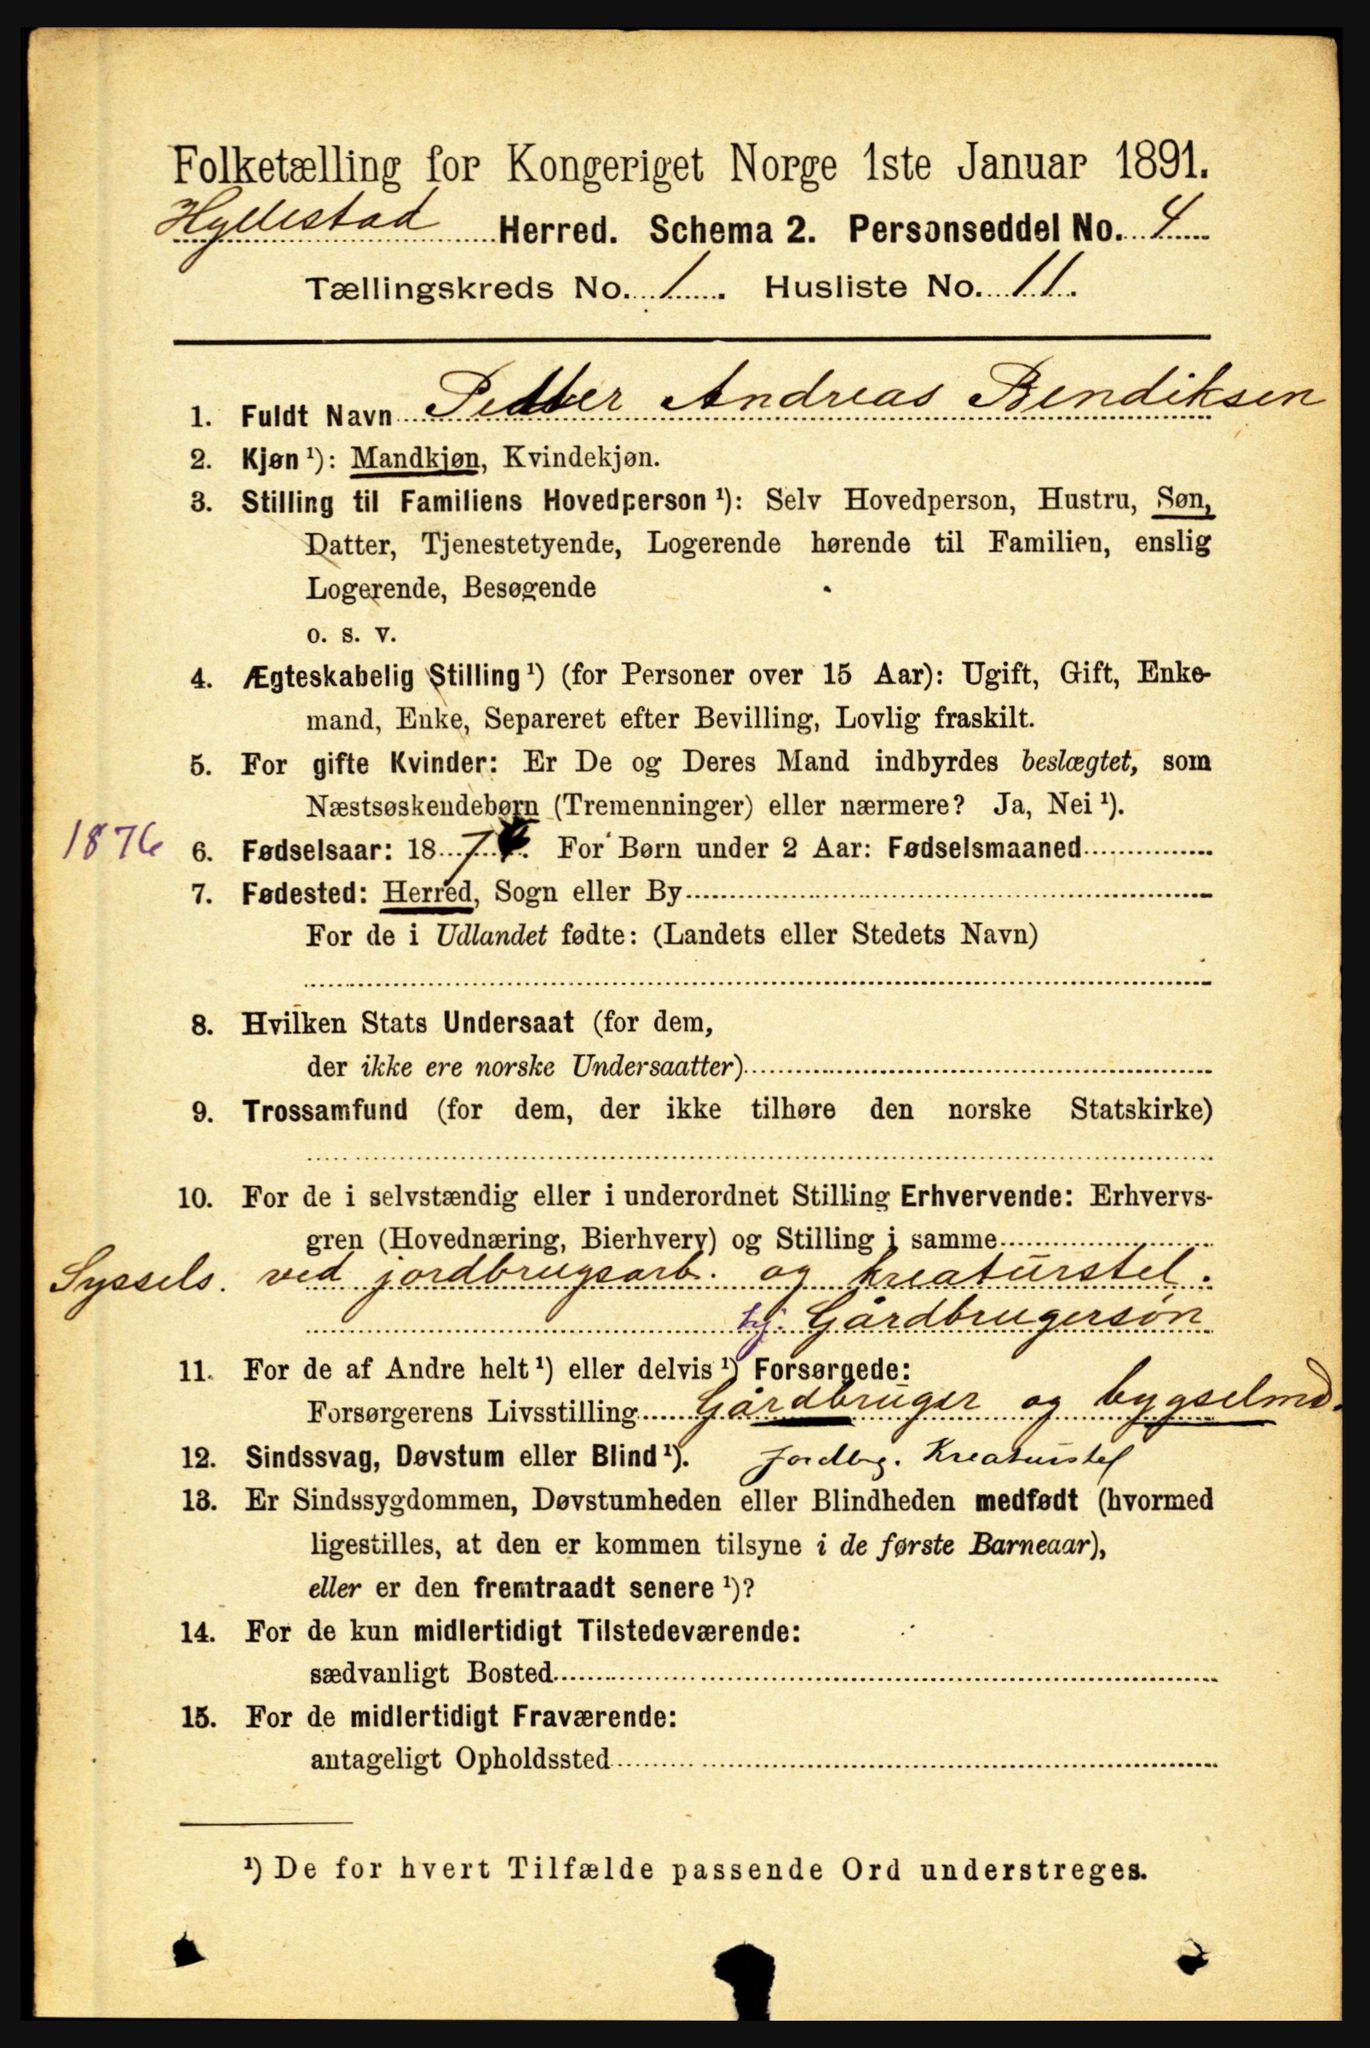 Folketælling for Kongeriget Norge 1ste Januar 1891.
Hyllestad Herred. Schema 2. Personseddel No. 4
Tællingskreds No. 1. Husliste No. 11.
1. Fuldt Navn Petter Andreas Bendiksen
2. Kjøn ¹): Mandkjøn, Kvindekjøn.
3. Stilling til Familiens Hovedperson ¹): Selv Hovedperson, Hustru, Søn,
Datter, Tjenestetyende, Logerende hørende til Familien, enslig
Logerende, Besøgende
o. s. v.
4. Ægteskabelig Stilling ¹) (for Personer over 15 Aar): Ugift, Gift, Enke-
mand, Enke, Separeret efter Bevilling, Lovlig fraskilt.
5. For gifte Kvinder: Er De og Deres Mand indbyrdes beslægtet, som
Næstsøskendebørn (Tremenninger) eller nærmere? Ja, Nei ¹).
1876 6. Fødselsaar: 187 . For Børn under 2 Aar: Fødselsmaaned
7. Fødested: Herred, Sogn eller By
For de i Udlandet fødte: (Landets eller Stedets Navn)
8. Hvilken Stats Undersaat (for dem,
der ikke ere norske Undersaatter)
9. Trossamfund (for dem, der ikke tilhøre den norske Statskirke)
10. For de i selvstændig eller i underordnet Stilling Erhvervende: Erhvervs-
gren (Hovednæring, Bierhverv) og Stilling i samme
Syssels. ved jordbrugsarb. og kreaturstel.
hj. Gårdbrugersøn
11. For de af Andre helt ¹) eller delvis ¹) Forsørgede:
Forsørgerens Livsstilling Gårdbruger og bygselmd.
12. Sindssvag, Døvstum eller Blind ¹). Jordbg. Kreaturstel
13. Er Sindssygdommen, Døvstumheden eller Blindheden medfødt (hvormed
ligestilles, at den er kommen tilsyne i de første Barneaar),
eller er den fremtraadt senere ¹)?
14. For de kun midlertidigt Tilstedeværende:
sædvanligt Bosted
15. For de midlertidigt Fraværende:
antageligt Opholdssted
¹) De for hvert Tilfælde passende Ord understreges.